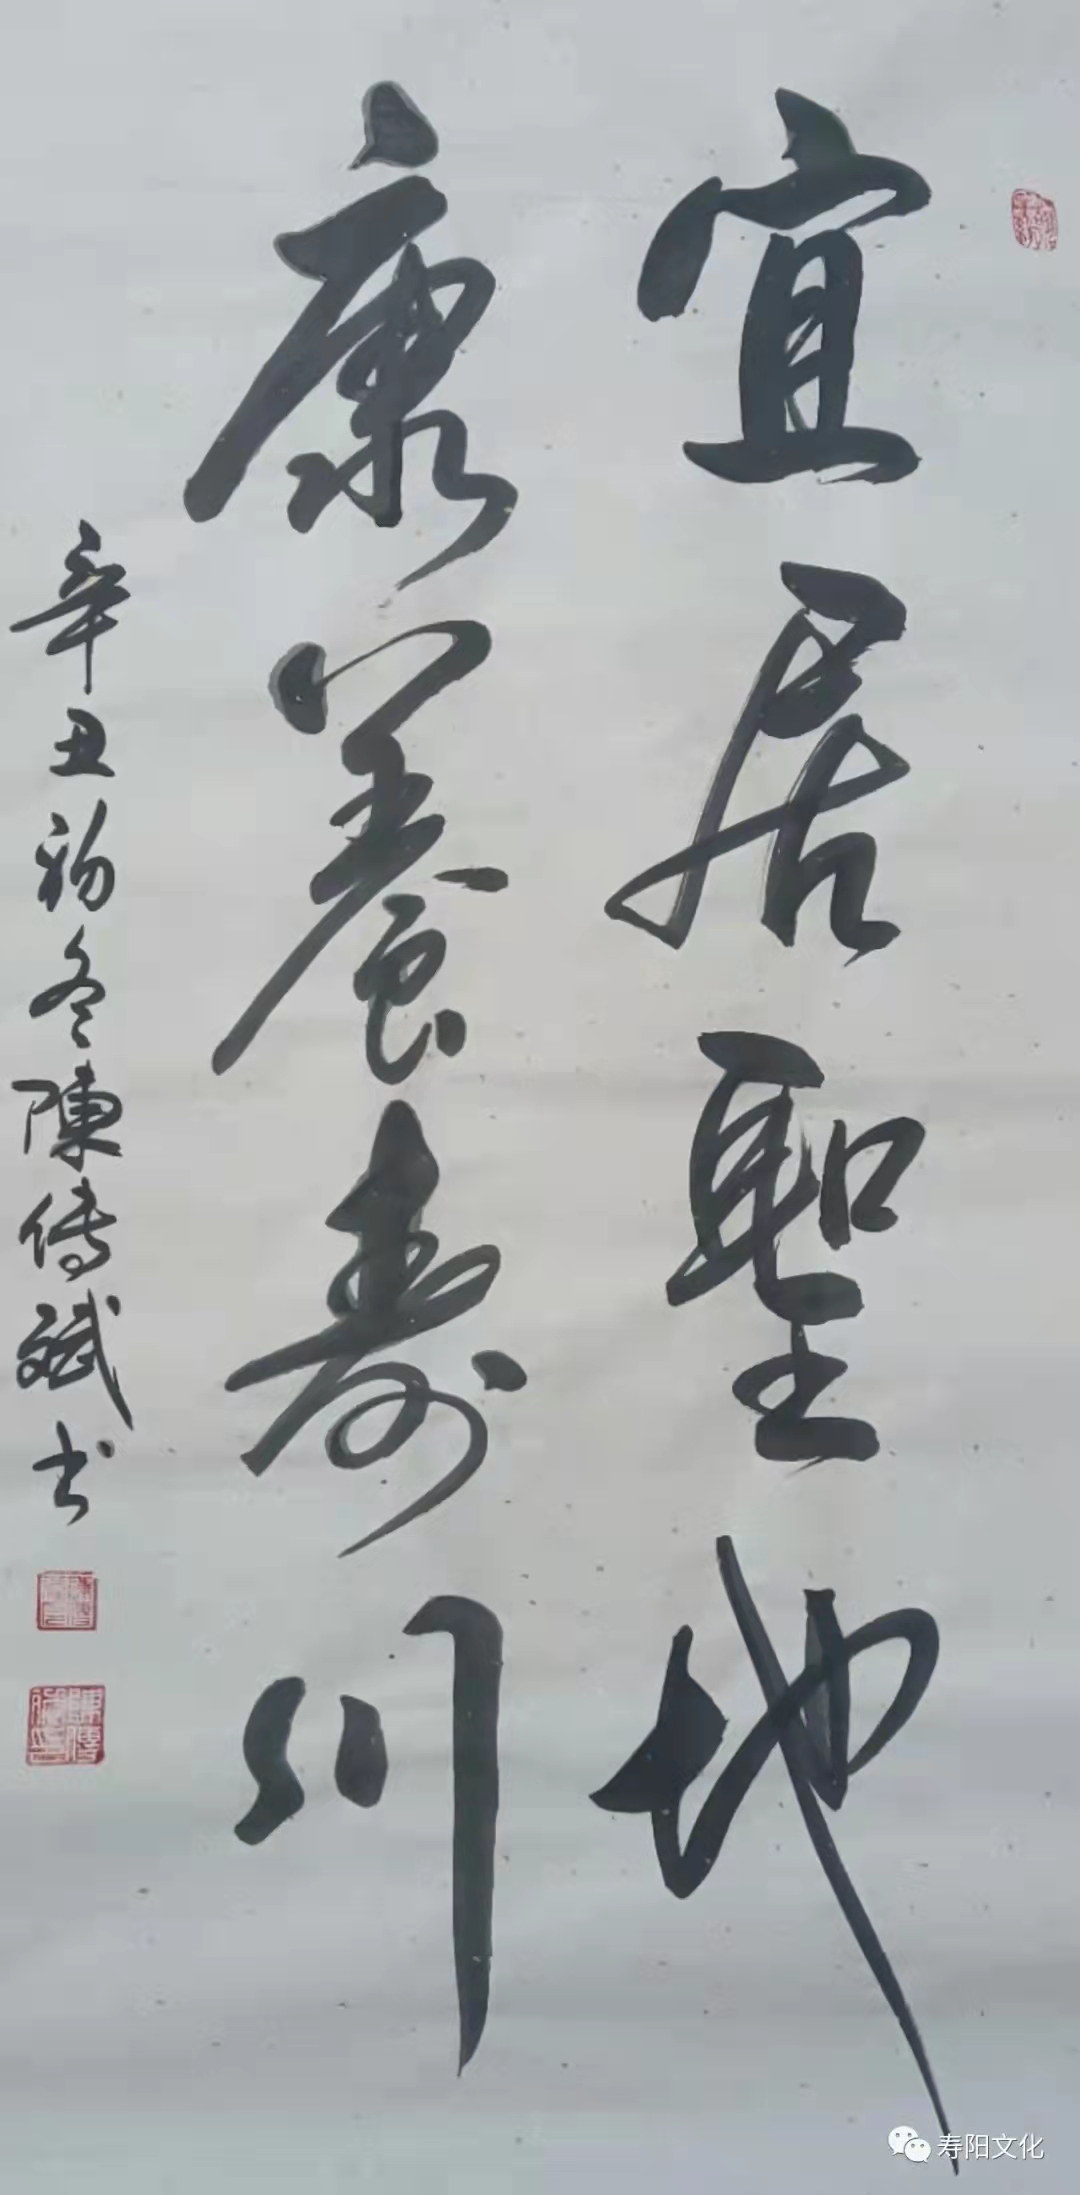 宜居聖地
康養寿川
辛丑初冬陳傳斌书
寿阳文化